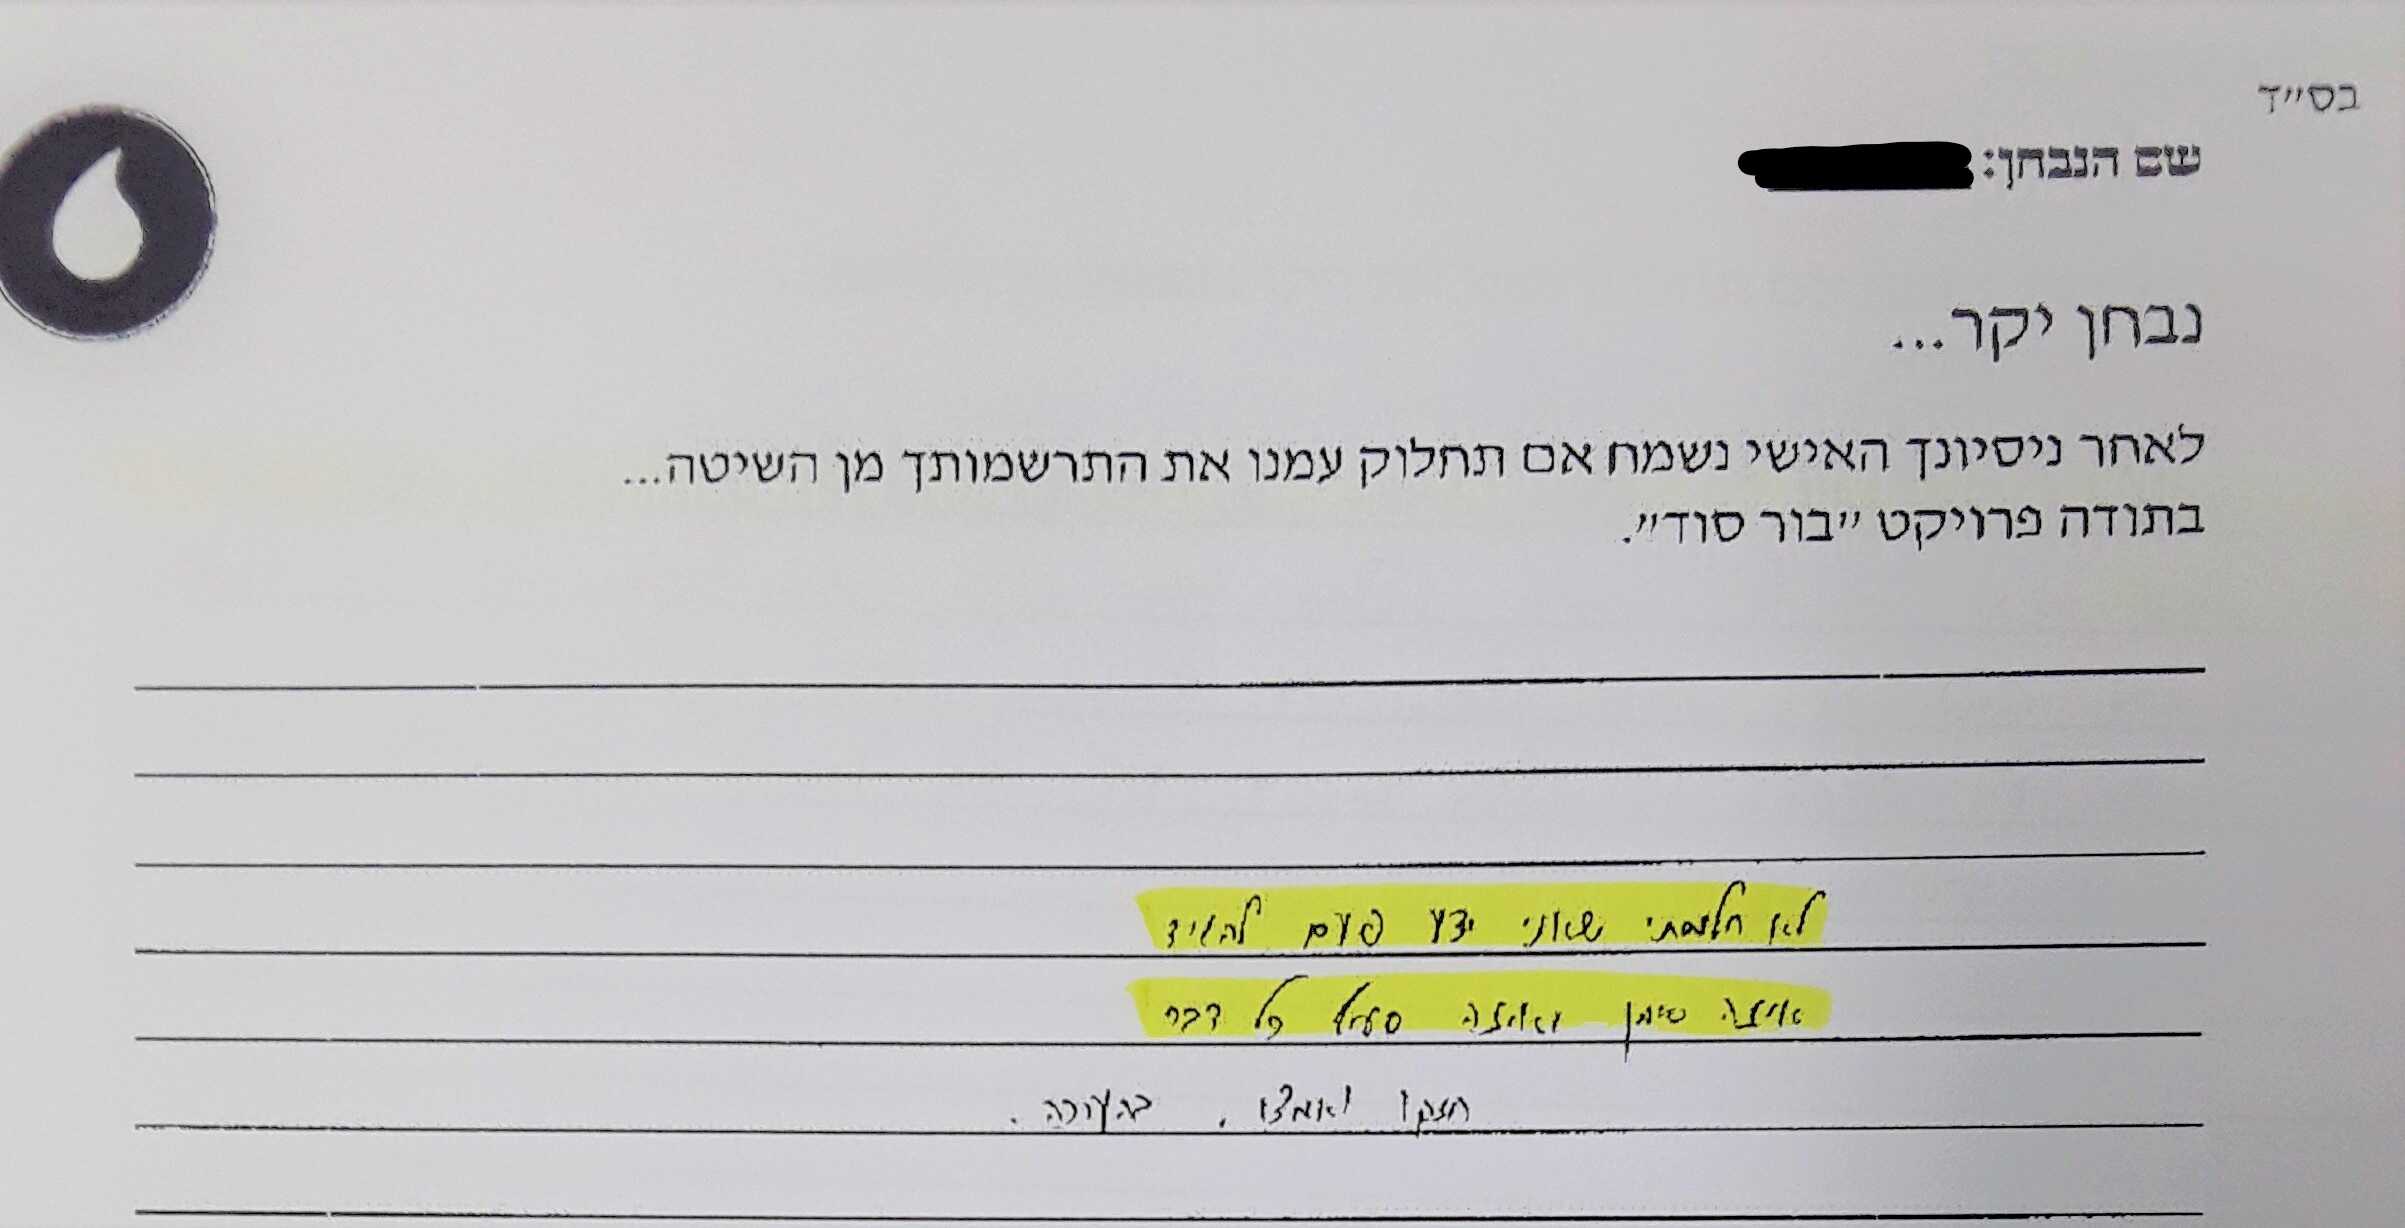 בס״ד
שם הנבחן:
נבחן יקר...
לאחר ניסיונך האישי נשמח אם תחלוק עמנו את התרשמותך מן השיטה...
בתודה פרויקט ״בור סוד״.
לא חלמתי שאני ידע פעם להגיד
איזה סימן ואיזה סעיף כל דבר
חזקו ואמצו. בהערכה.